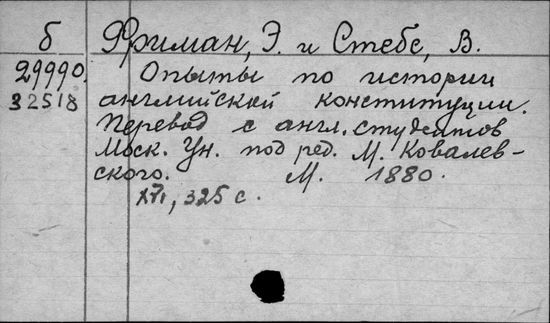 б Фриман, Э. и Стебс, В.
29990. Опыты по истории
32518 английской конституции.
Перевод с англ. студентов
Моск. Ун. под ред. М. Ковалев-
ского. М. 1880.
XVI, 325 с.